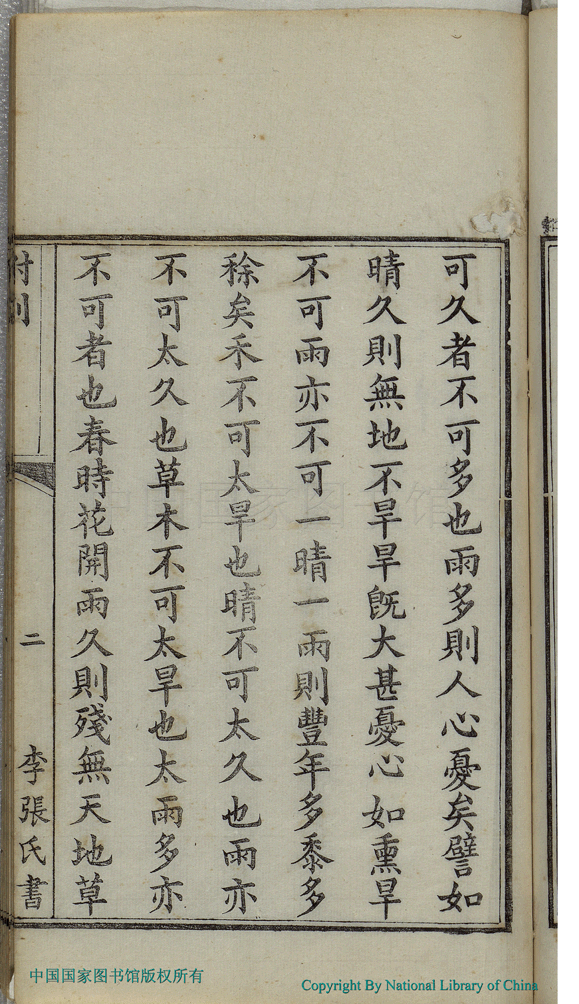 可久者不可多也雨多則人心憂矣譬如
晴久則無地不旱旱旣大甚憂心如熏旱
不可雨亦不可一晴一雨則豐年多黍多
稌矣禾不可太旱也晴不可太久也雨亦
不可太久也草木不可太旱也太雨多亦
不可者也春時花開雨久則殘無天地草
附刊
二
李張氏書
中国国家图书馆
中国国家图书馆版权所有
Copyright By National Library of China